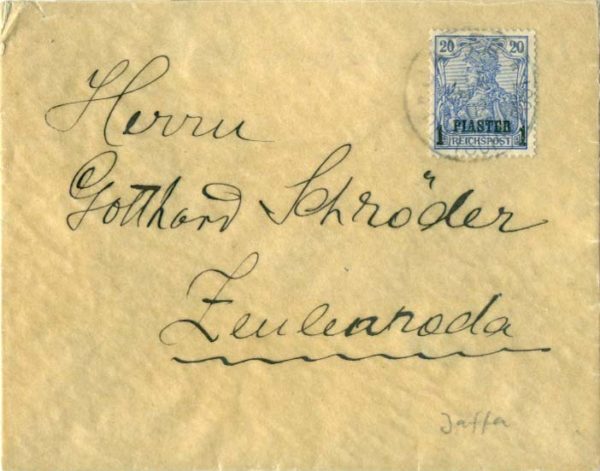 20 20
1 PIASTER 1
REICHSPOST
Herrn
Gotthard Schröder
Zeulenroda
Jaffa